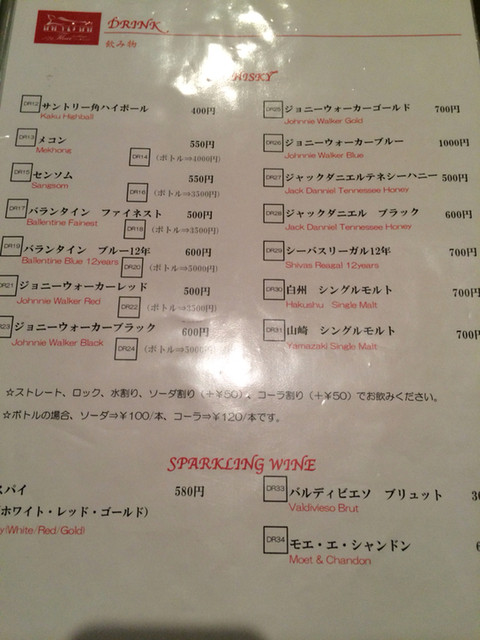 DRINK
飲み物
HISKY
DR12 サントリー角ハイボール 400円
Kaku Highball
DR13 メコン 550円
Mekhong
DR14 (ボトル⇒4000円)
DR15 センソム 550円
Sangsom
DR16 (ボトル⇒3500円)
DR17 バランタイン ファイネスト 500円
Ballentine Fainest
DR18 (ボトル⇒3500円)
DR19 バランタイン ブルー12年 600円
Ballentine Blue 12years
DR20 (ボトル⇒5000円)
DR21 ジョニーウォーカーレッド 500円
Johnnie Walker Red
DR22 (ボトル⇒3500円)
DR23 ジョニーウォーカーブラック 600円
Johnnie Walker Black
DR24 (ボトル⇒5000円)
DR25 ジョニーウォーカーゴールド 700円
Johnnie Walker Gold
DR26 ジョニーウォーカーブルー 1000円
Johnnie Walker Blue
DR27 ジャックダニエルテネシーハニー 500円
Jack Danniel Tennessee Honey
DR28 ジャックダニエル ブラック 600円
Jack Danniel Tennessee Honey
DR29 シーバスリーガル12年 700円
Shivas Reagal 12years
DR30 白州 シングルモルト 700円
Hakushu Single Malt
DR31 山崎 シングルモルト 700円
Yamazaki Single Malt
☆ストレート、ロック、水割り、ソーダ割り(+¥50)、コーラ割り(+¥50)でお飲みください。
☆ボトルの場合、ソーダ⇒¥100/本、コーラ⇒¥120/本です。
SPARKLING WINE
スパイ 580円
ホワイト・レッド・ゴールド)
y(White/Red/Gold)
DR33 バルディビエソ ブリュット
Valdivieso Brut
DR34 モエ・エ・シャンドン
Moet & Chandon